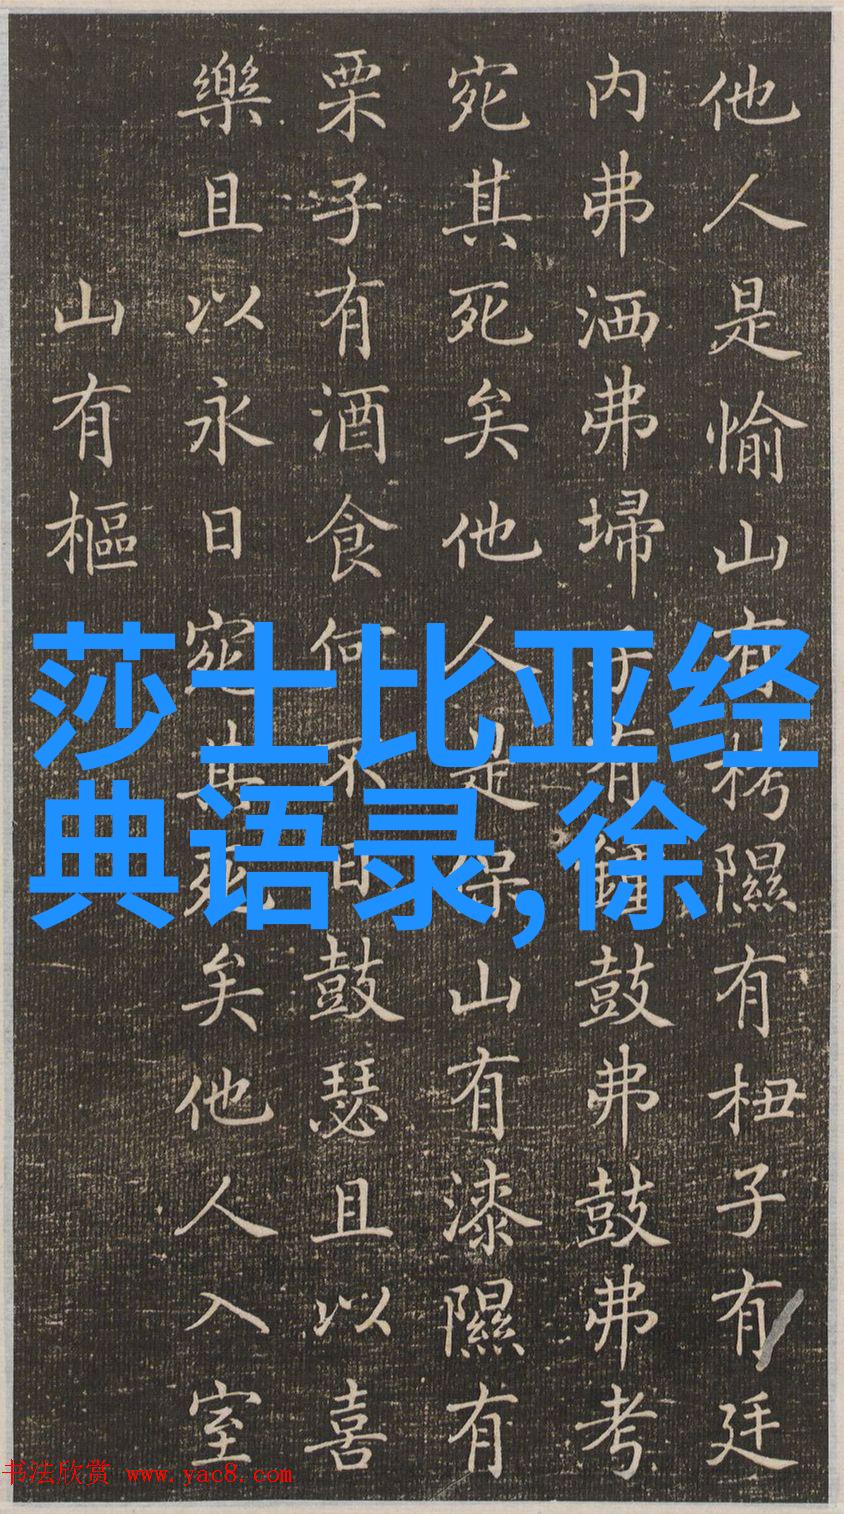 他人是愉山有栲隰有杻子有廷
内弗洒弗埽子有鍾鼓弗鼓弗考
宛其死矣他人是保山有漆隰有
栗子有酒食何不日鼓瑟且以喜
樂且以永日宛其死矣他人入室
山有樞
莎士比亚经
典语录,徐
书法欣赏 www.yac8.com